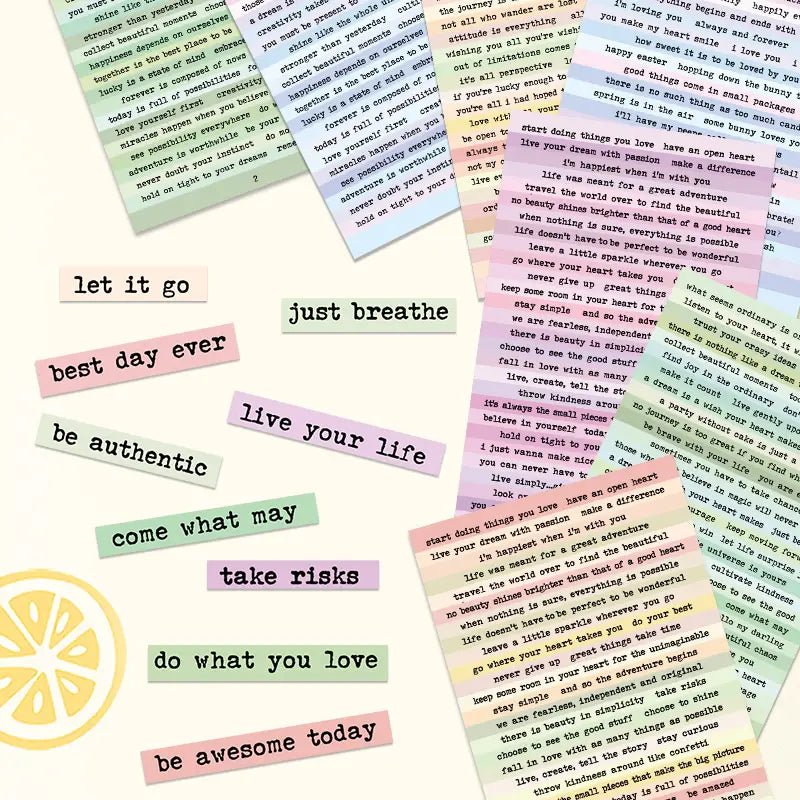 you must
shine like
stronger than yesterday
collect beautiful moments choose
happiness depends on ourselves
together is the best place to be
lucky is a state of mind embrac
forever is composed of nows
today is full of possibilities fo
love yourself first creativity
miracles happen when you believe
see possibility everywhere do
adventure is worthwhile be your
never doubt your instinct do mo
hold on tight to your dreams reme
2
a dream is
creativity takes
you must be present to
shine like the whole
stronger than yesterday
collect beautiful moments
happiness depends on ourselves
together is the best place to
lucky is a state of mind
forever is composed of
today is full of possibili
love yourself first crea
miracles happen when you
see possibility everywhere
adventure is worthwhile
never doubt your instinct
hold on tight to your d
the journey is
not all who wander are lost
attitude is everything
wishing you all you're wish
out of limitations comes
it's all perspective
if you're lucky enough to
you're all i had hoped
love with all your
be open to
always
not my
live ev
happily e
everything begins and ends with
i'm loving you always and forever
you make my heart smile i love you
how sweet it is to be loved by you
happy easter hopping down the bunny t
good things come in small packages
there is no such thing as too much cand
spring is in the air some bunny loves yo
i'll have my peeps
start doing things you love have an open heart
live your dream with passion make a difference
i'm happiest when i'm with you
life was meant for a great adventure
travel the world over to find the beautiful
no beauty shines brighter than that of a good heart
when nothing is sure, everything is possible
life doesn't have to be perfect to be wonderful
leave a little sparkle wherever you go
go where your heart takes you
never give up great things
keep some room in your heart for t
stay simple and so the adve
we are fearless, independent
there is beauty in simplicity
choose to see the good stuff
fall in love with as many
live, create, tell the sto
throw kindness arou
it's always the small pieces
believe in yourself toda
hold on tight to you
i just wanna make nice
you can never have to
live simply...
look on
what seems ordinary is
listen to your heart, it w
trust your crazy ideas
there is nothing like a dream
collect beautiful moments
find joy in the ordinary don'
make it count live gently
a dream is a wish your heart makes
a party without cake is just a
no journey is too great if you find wh
be brave with your life you are
sometimes you have to take chanc
those who believe in magic will never
a dream your heart makes just be
courage keep moving forw
win let life surprise
the universe is yours
cultivate kindness
choose to see the good
come what may
hello my darling
beautiful chaos
let it go
just breathe
best day ever
live your life
be authentic
come what may
take risks
do what you love
be awesome today
start doing things you love have an open heart
live your dream with passion make a difference
i'm happiest when i'm with you
life was meant for a great adventure
travel the world over to find the beautiful
no beauty shines brighter than that of a good heart
when nothing is sure, everything is possible
life doesn't have to be perfect to be wonderful
leave a little sparkle wherever you go
go where your heart takes you do your best
never give up great things take time
keep some room in your heart for the unimaginable
stay simple and so the adventure begins
we are fearless, independent and original
there is beauty in simplicity take risks
choose to see the good stuff choose to shine
fall in love with as many things as possible
live, create, tell the story stay curious
throw kindness around like confetti
small pieces that make the big picture
today is full of possiblities
be amazed
happen